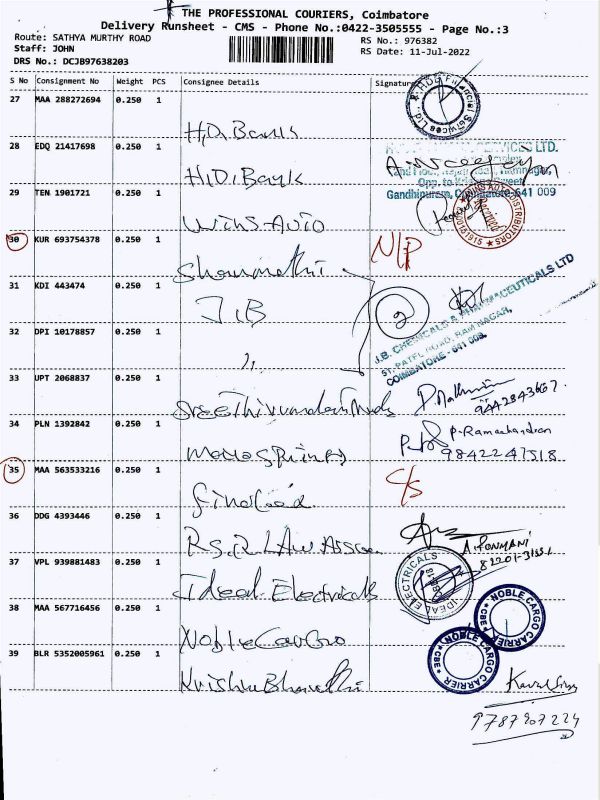 THE PROFESSIONAL COURIERS, Coimbatore
Delivery Runsheet - CMS - Phone No.:0422-3505555 - Page No.:3
Route: SATHYA MURTHY ROAD
RS No.: 976382
Staff: JOHN
RS Date: 11-Jul-2022
DRS No.: DCJB97638203
S No Consignment No Weight PCS Consignee Details Signature
27 MAA 288272694 0.250 1
H.D. Bank
28 EDQ 21417698 0.250 1
H.D. Bank
Gandhipuram, Coimbatore-641 009
29 TEN 1901721 0.250 1
Wins Auto
30 KUR 693754378 0.250 1
N/P
31 KDI 443474 0.250 1
J.B
2
J.B. CHEMICALS & PHARMACEUTICALS LTD
51, PATEL ROAD, RAM NAGAR,
COIMBATORE - 641 009.
32 DPI 10178857 0.250 1
33 UPT 2068837 0.250 1
9442843667.
34 PLN 1392842 0.250 1
P. Ramachandran
9842247518
35 MAA 563533216 0.250 1
C/S
36 DDG 4393446 0.250 1
A. PONMANI
37 VPL 939881483 0.250 1
Ideal Electricals
IDEAL ELECTRICALS
38 MAA 567716456 0.250 1
Noble Cargo
NOBLE CARGO CARRIER
CBE
NOBLE CARGO CARRIER
CBE
39 BLR 5352005961 0.250 1
Krishna Bharathi
9787907224